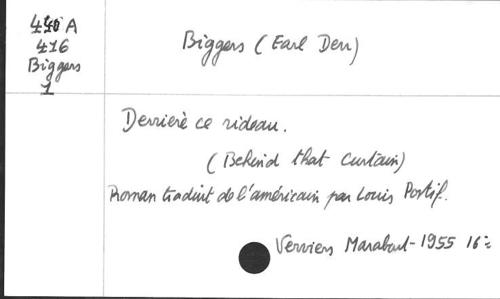 440 A
416
Biggers
1
Biggers (Earl Derr)
Derrière ce rideau.
(Behind that curtain)
Roman traduit de l'américain par Louis Postif.
Verviers Marabout - 1955 16=